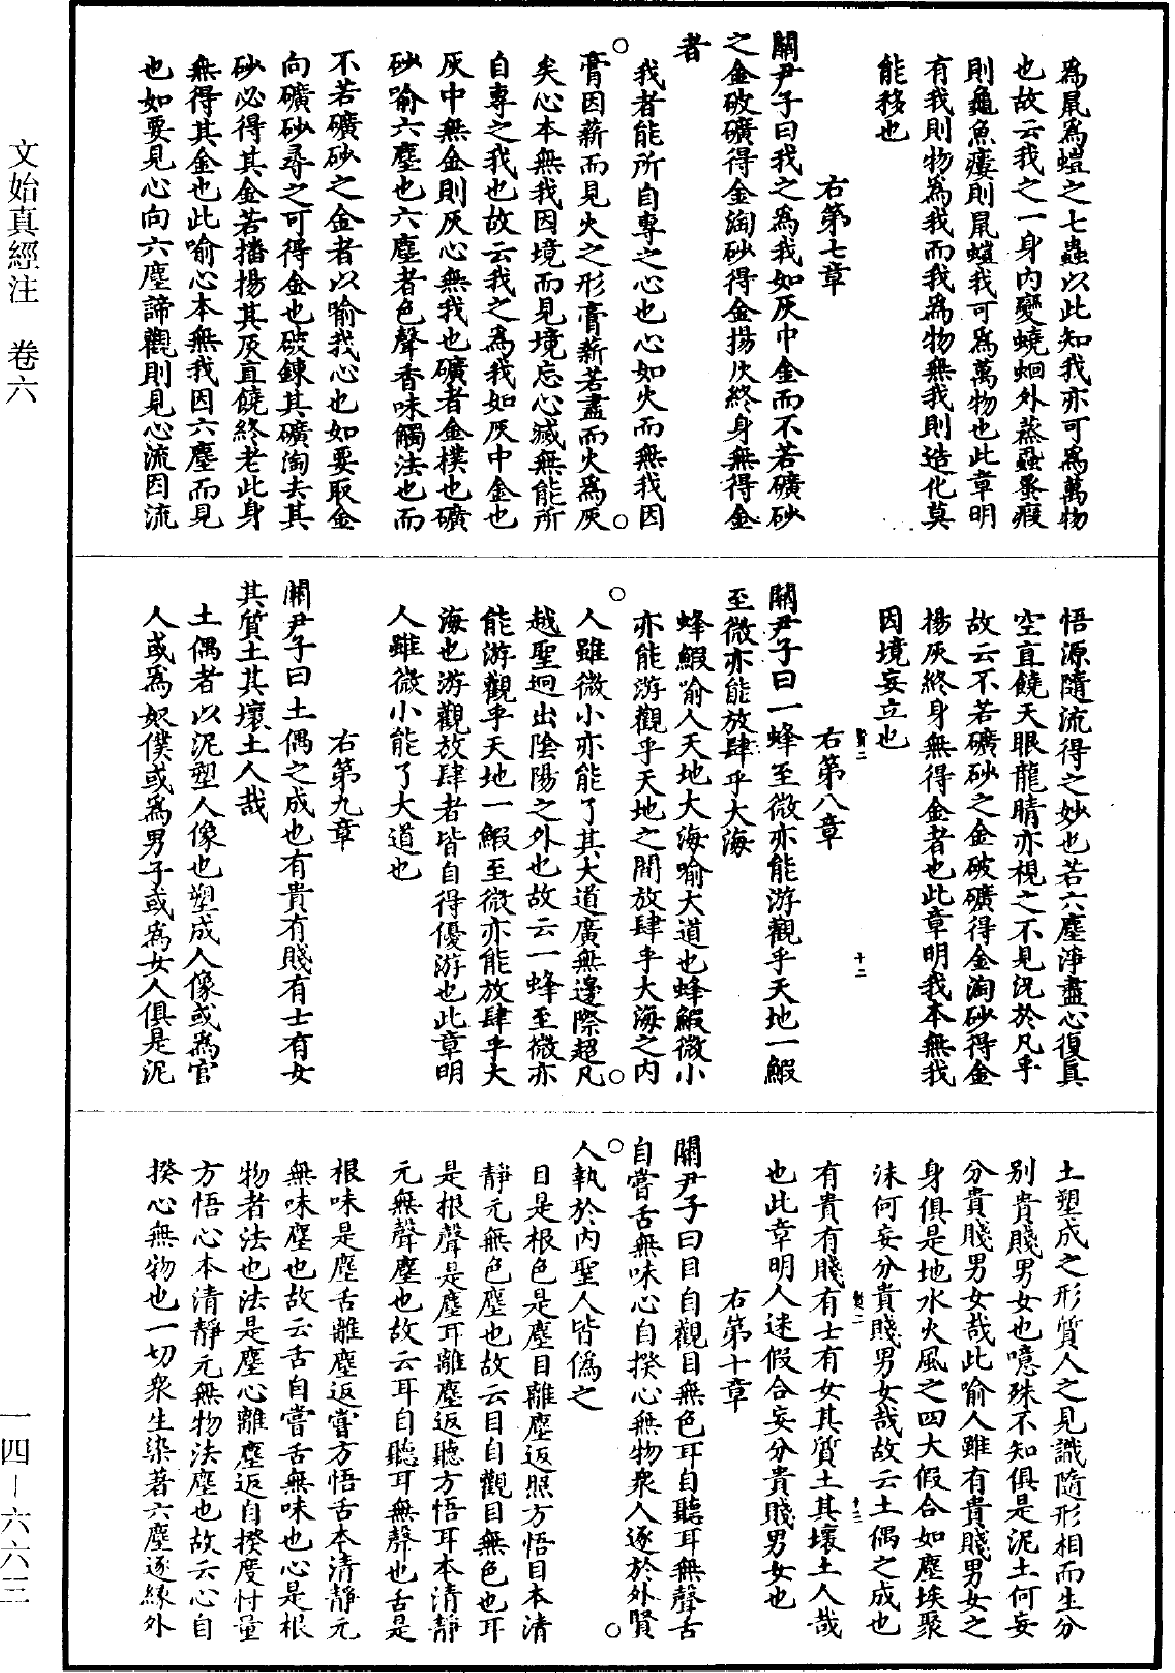 文始真經注　卷六
為鼠為螘之七蟲以此知我亦可為萬物
也故云我之一身內變蟯蛔外蒸蝨蚤瘕
則龜魚瘻則鼠螘我可為萬物也此章明
有我則物為我而我為物無我則造化莫
能移也
右第七章
關尹子曰我之為我如灰中金而不若礦砂
之金破礦得金淘砂得金揚灰終身無得金
者
我者能所自專之心也心如火而無我因
膏因薪而見火之形膏薪若盡而火為灰
矣心本無我因境而見境忘心滅無能所
自專之我也故云我之為我如灰中金也
灰中無金則灰心無我也礦者金樸也礦
砂喻六塵也六塵者色聲香味觸法也而
不若礦砂之金者以喻我心也如要取金
向礦砂尋之可得金也破鍊其礦淘去其
砂必得其金若播揚其灰直饒終老此身
無得其金也此喻心本無我因六塵而見
也如要見心向六塵諦觀則見心流因流
悟源隨流得之妙也若六塵淨盡心復真
空直饒天眼龍睛亦視之不見況於凡乎
故云不若礦砂之金破礦得金淘砂得金
揚灰終身無得金者也此章明我本無我
因境妄立也
右第八章
關尹子曰一蜂至微亦能游觀乎天地一鰕
至微亦能放肆乎大海
蜂鰕喻人天地大海喻大道也蜂鰕微小
亦能游觀乎天地之間放肆乎大海之內
人雖微小亦能了其大道廣無邊際超凡
越聖迥出陰陽之外也故云一蜂至微亦
能游觀乎天地一鰕至微亦能放肆乎大
海也游觀放肆者皆自得優游也此章明
人雖微小能了大道也
右第九章
關尹子曰土偶之成也有貴有賤有士有女
其質土其壞土人哉
土偶者以泥塑人像也塑成人像或為官
人或為奴僕或為男子或為女人俱是泥
土塑成之形質人之見識隨形相而生分
別貴賤男女也噫殊不知俱是泥土何妄
分貴賤男女哉此喻人雖有貴賤男女之
身俱是地水火風之四大假合如塵埃聚
沫何妄分貴賤男女哉故云土偶之成也
有貴有賤有士有女其質土其壞土人哉
也此章明人迷假合妄分貴賤男女也
右第十章
關尹子曰目自觀目無色耳自聽耳無聲舌
自嘗舌無味心自揆心無物衆人逐於外賢
人執於內聖人皆偽之
目是根色是塵目離塵返照方悟目本清
靜元無色塵也故云目自觀目無色也耳
是根聲是塵耳離塵返聽方悟耳本清靜
元無聲塵也故云耳自聽耳無聲也舌是
根味是塵舌離塵返嘗方悟舌本清靜元
無味塵也故云舌自嘗舌無味也心是根
物者法也法是塵心離塵返自揆度忖量
方悟心本清靜元無物法塵也故云心自
揆心無物也一切衆生染著六塵逐緣外
一四－六六三